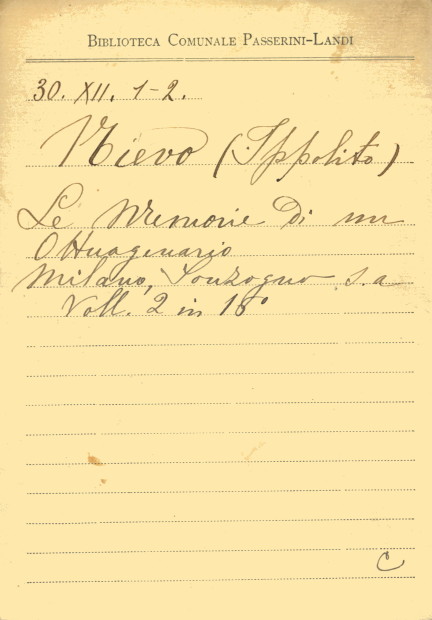 BIBLIOTECA COMUNALE PASSERINI-LANDI
30. XII. 1-2.
Nievo (Ippolito)
Le Memorie di un
Ottuagenario
Milano, Sonzogno s.a
Voll. 2 in 16°
C